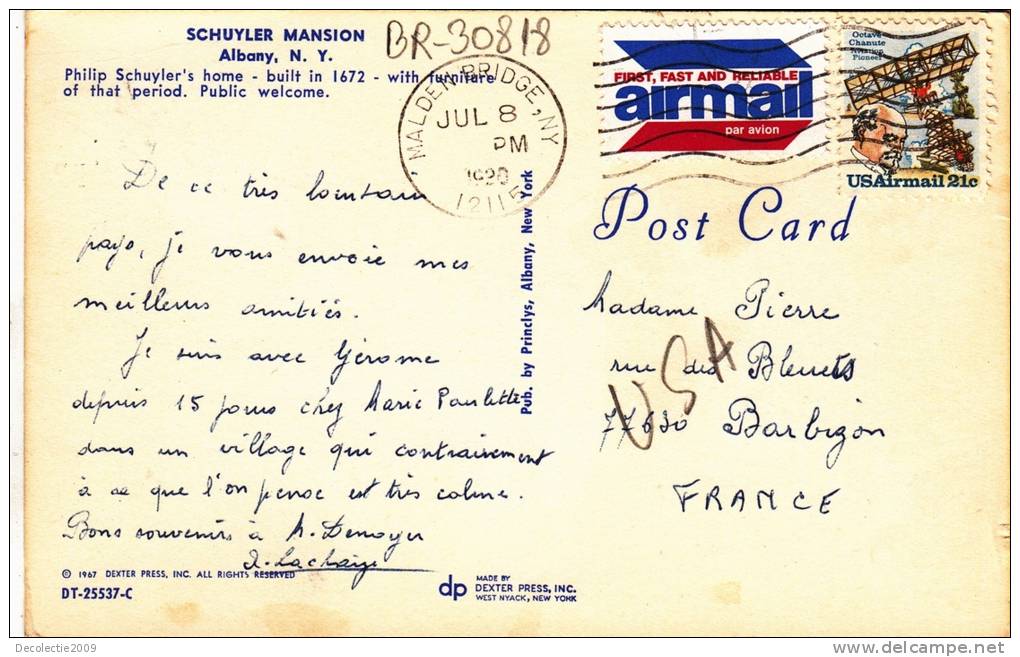 SCHUYLER MANSION
Albany, N. Y.
Philip Schuyler's home - built in 1672 - with furniture
of that period. Public welcome.
BR-30818
MALDEN BRIDGE, NY
JUL 8
PM
12115
FIRST, FAST AND RELIABLE
airmail
par avion
Octave
Chanute
Aviation
Pioneer
USAirmail 21c
Post Card
De ce très lointain
pays, je vous envoie mes
meilleurs amitiés.
Je suis avec Gérome
depuis 15 jours chez Marie Paulette
dans un village qui contrairement
à ce que l'on pense est très calme.
Bons souvenirs à M. Denoyer
Madame Pierre
rue des Bleuets
77630 Barbizon
FRANCE
USA
Pub. by Princlys, Albany, New York
© 1967 DEXTER PRESS, INC. ALL RIGHTS RESERVED
DT-25537-C
dp
MADE BY
DEXTER PRESS, INC.
WEST NYACK, NEW YORK
Decolectie2009
delcampe.net